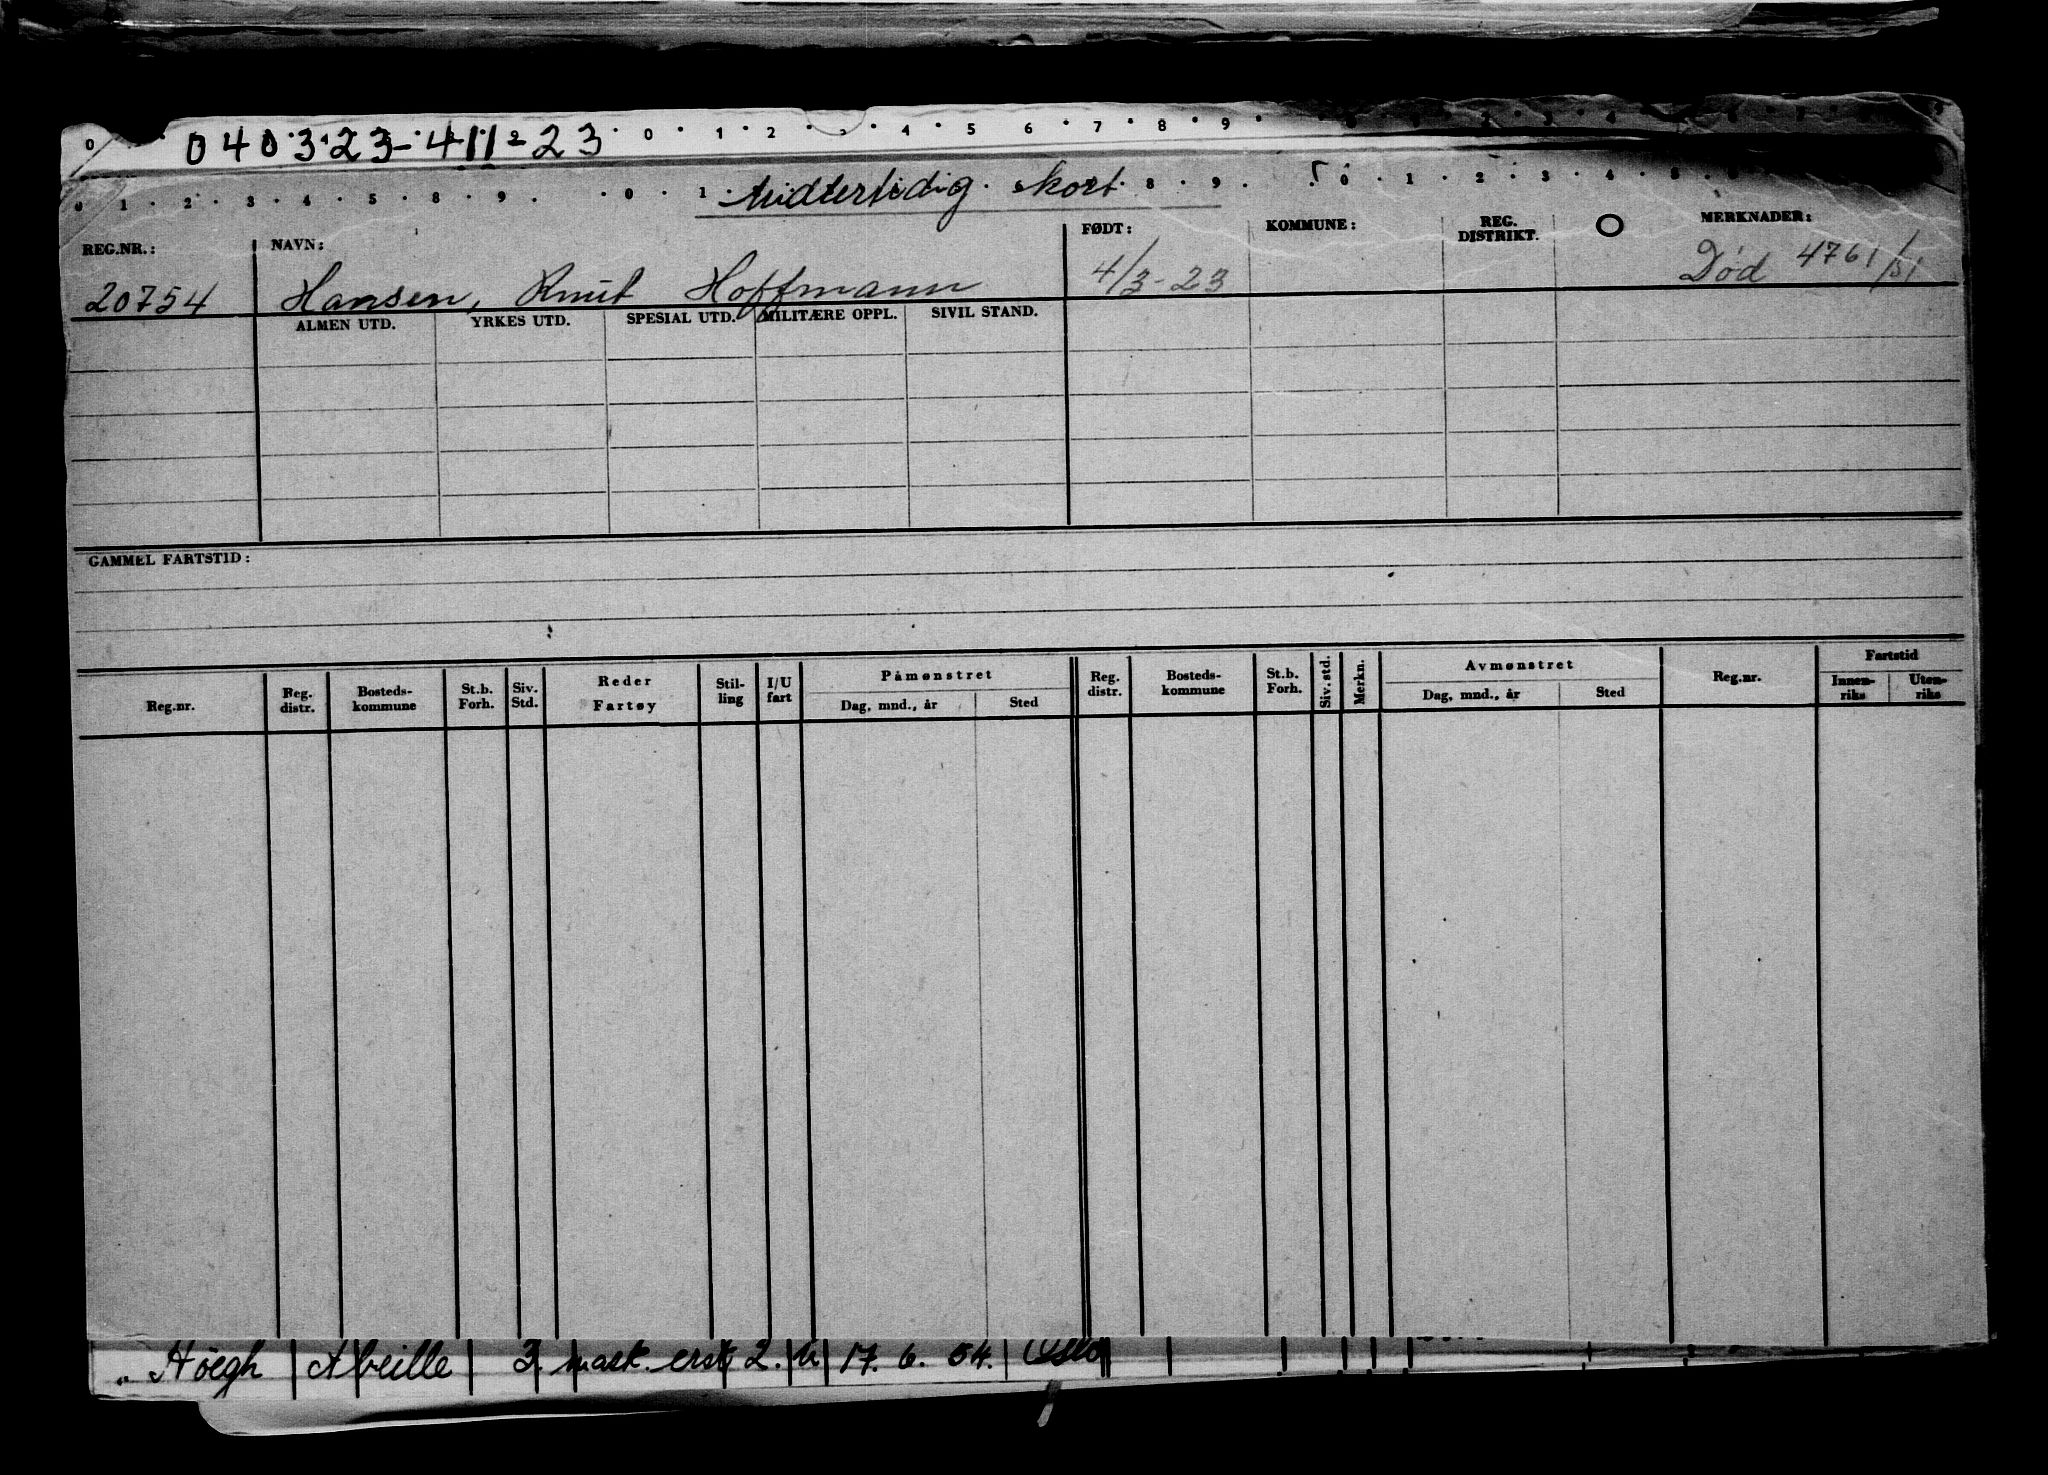 040323-411-23
0 1 2 3 4 5 6 7 8 9
0 1 2 3 4 5 8 9 0 1 Midlertidig kort 8 9 0 1 2 3 4 5
REG.NR.: NAVN: FØDT: KOMMUNE: REG. DISTRIKT. O MERKNADER:
20754 Hansen, Knut Hoffmann 4/3-23 Død 4761/51
ALMEN UTD. YRKES UTD. SPESIAL UTD. MILITÆRE OPPL. SIVIL STAND.
GAMMEL FARTSTID:
Reg.nr. Reg. distr. Bosteds-kommune St.b. Forh. Siv. Std. Reder Fartøy Stil-ling I/U fart Påmønstret Dag, mnd., år Sted Reg. distr. Bosteds-kommune St.b. Forh. Siv. std. Merkn. Avmønstret Dag, mnd., år Sted Reg.nr. Fartstid Innen-riks Uten-riks
" Höegh Abeille 3 mask. erst 2. U 17. 6. 54. Oslo